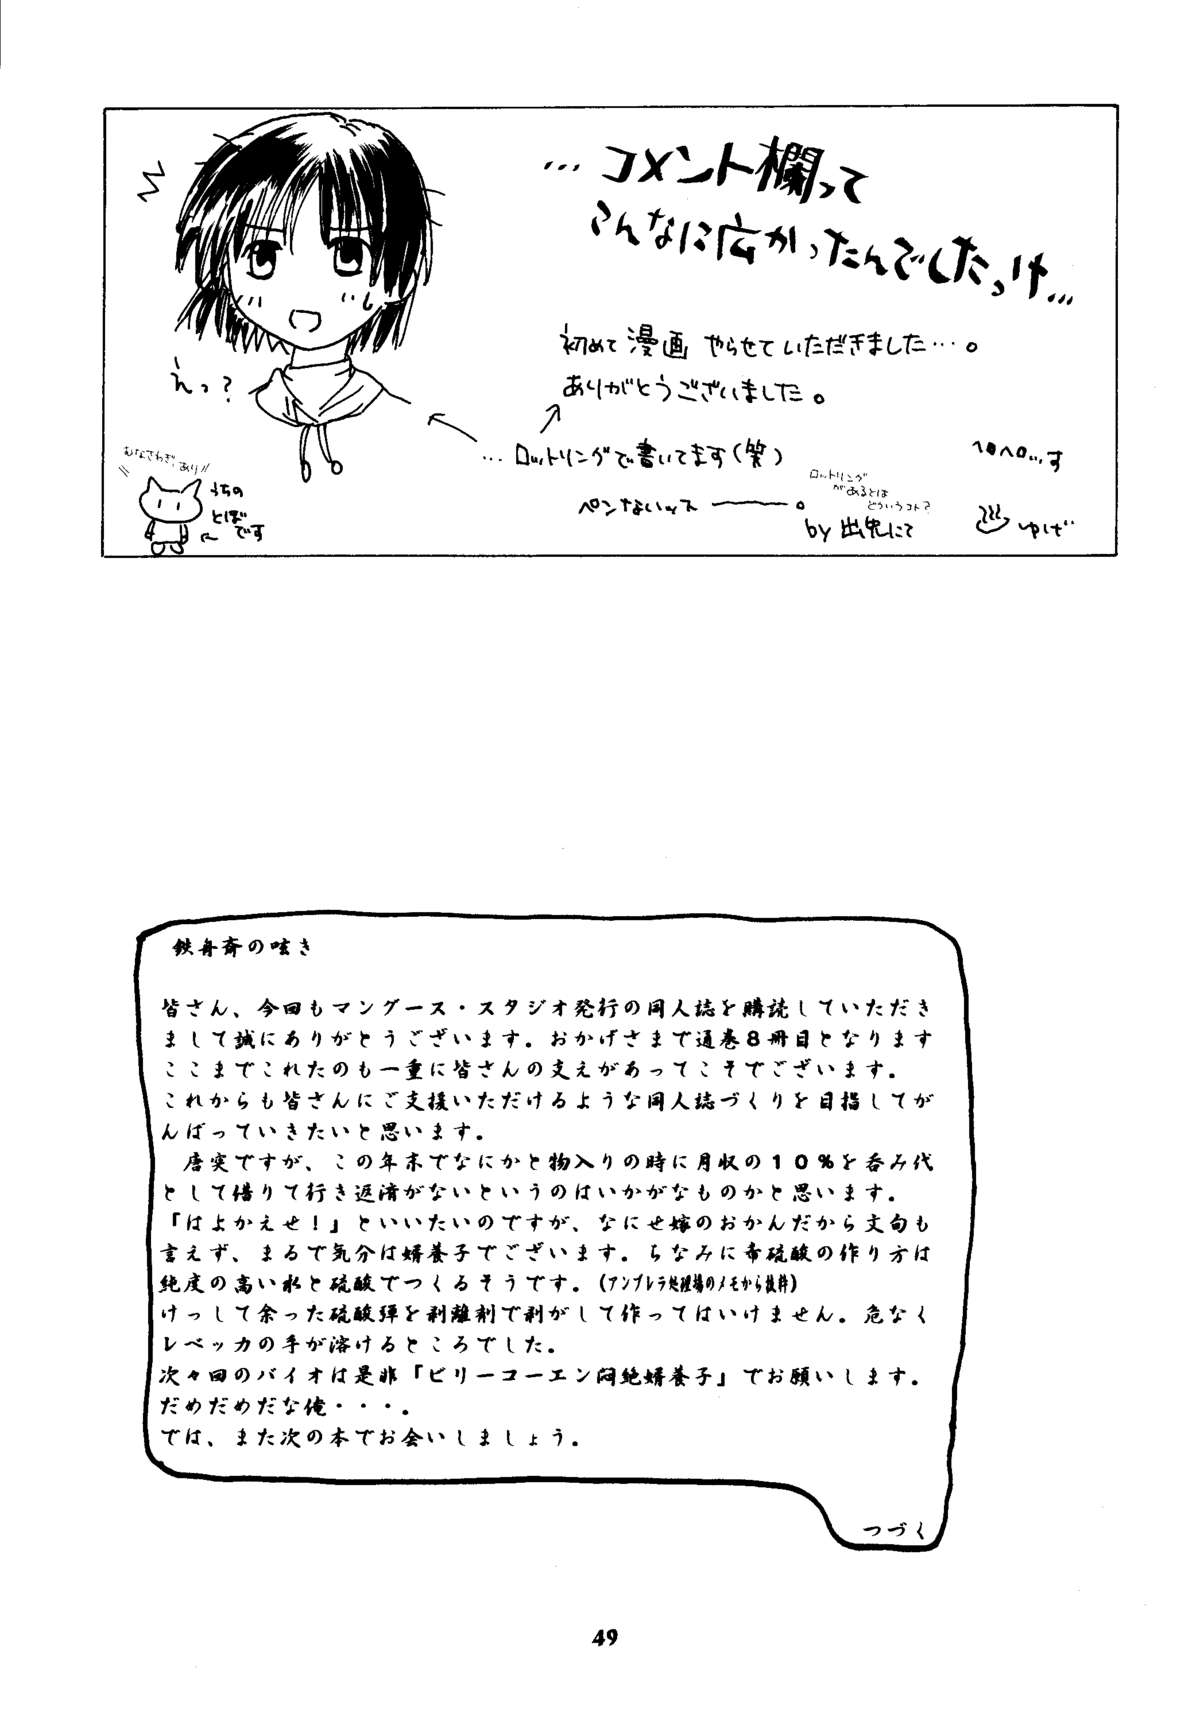 …コメント欄って
こんなに広かったんでしたっけ…
初めて漫画やらせていただきました…。
ありがとうございました。
えっ?
…ロットリングで書いてます(笑)
ペンないッス――。
ロットリング
があるとは
どういうコト?
ヘロヘロ…っす
by 出兎にて
ゆげ
むなさわぎ、あり
うちの
とぼ
です
鉄舟斎の呟き
皆さん、今回もマングース・スタジオ発行の同人誌を購読していただき
まして誠にありがとうございます。おかげさまで通巻8冊目となります
ここまでこれたのも一重に皆さんの支えがあってこそでございます。
これからも皆さんにご支援いただけるような同人誌づくりを目指してが
んばっていきたいと思います。
唐突ですが、この年末でなにかと物入りの時に月収の10%を呑み代
として借りて行き返済がないというのはいかがなものかと思います。
「はよかえせ!」といいたいのですが、なにせ嫁のおかんだから文句も
言えず、まるで気分は婿養子でございます。ちなみに希硫酸の作り方は
純度の高い水と硫酸でつくるそうです。(アンブレラ処理場のメモから抜粋)
けっして余った硫酸弾を剥離剤で剥がして作ってはいけません。危なく
レベッカの手が溶けるところでした。
次々回のバイオは是非「ビリーコーエン悶絶婿養子」でお願いします。
だめだめだな俺・・・。
では、また次の本でお会いしましょう。
つづく
49